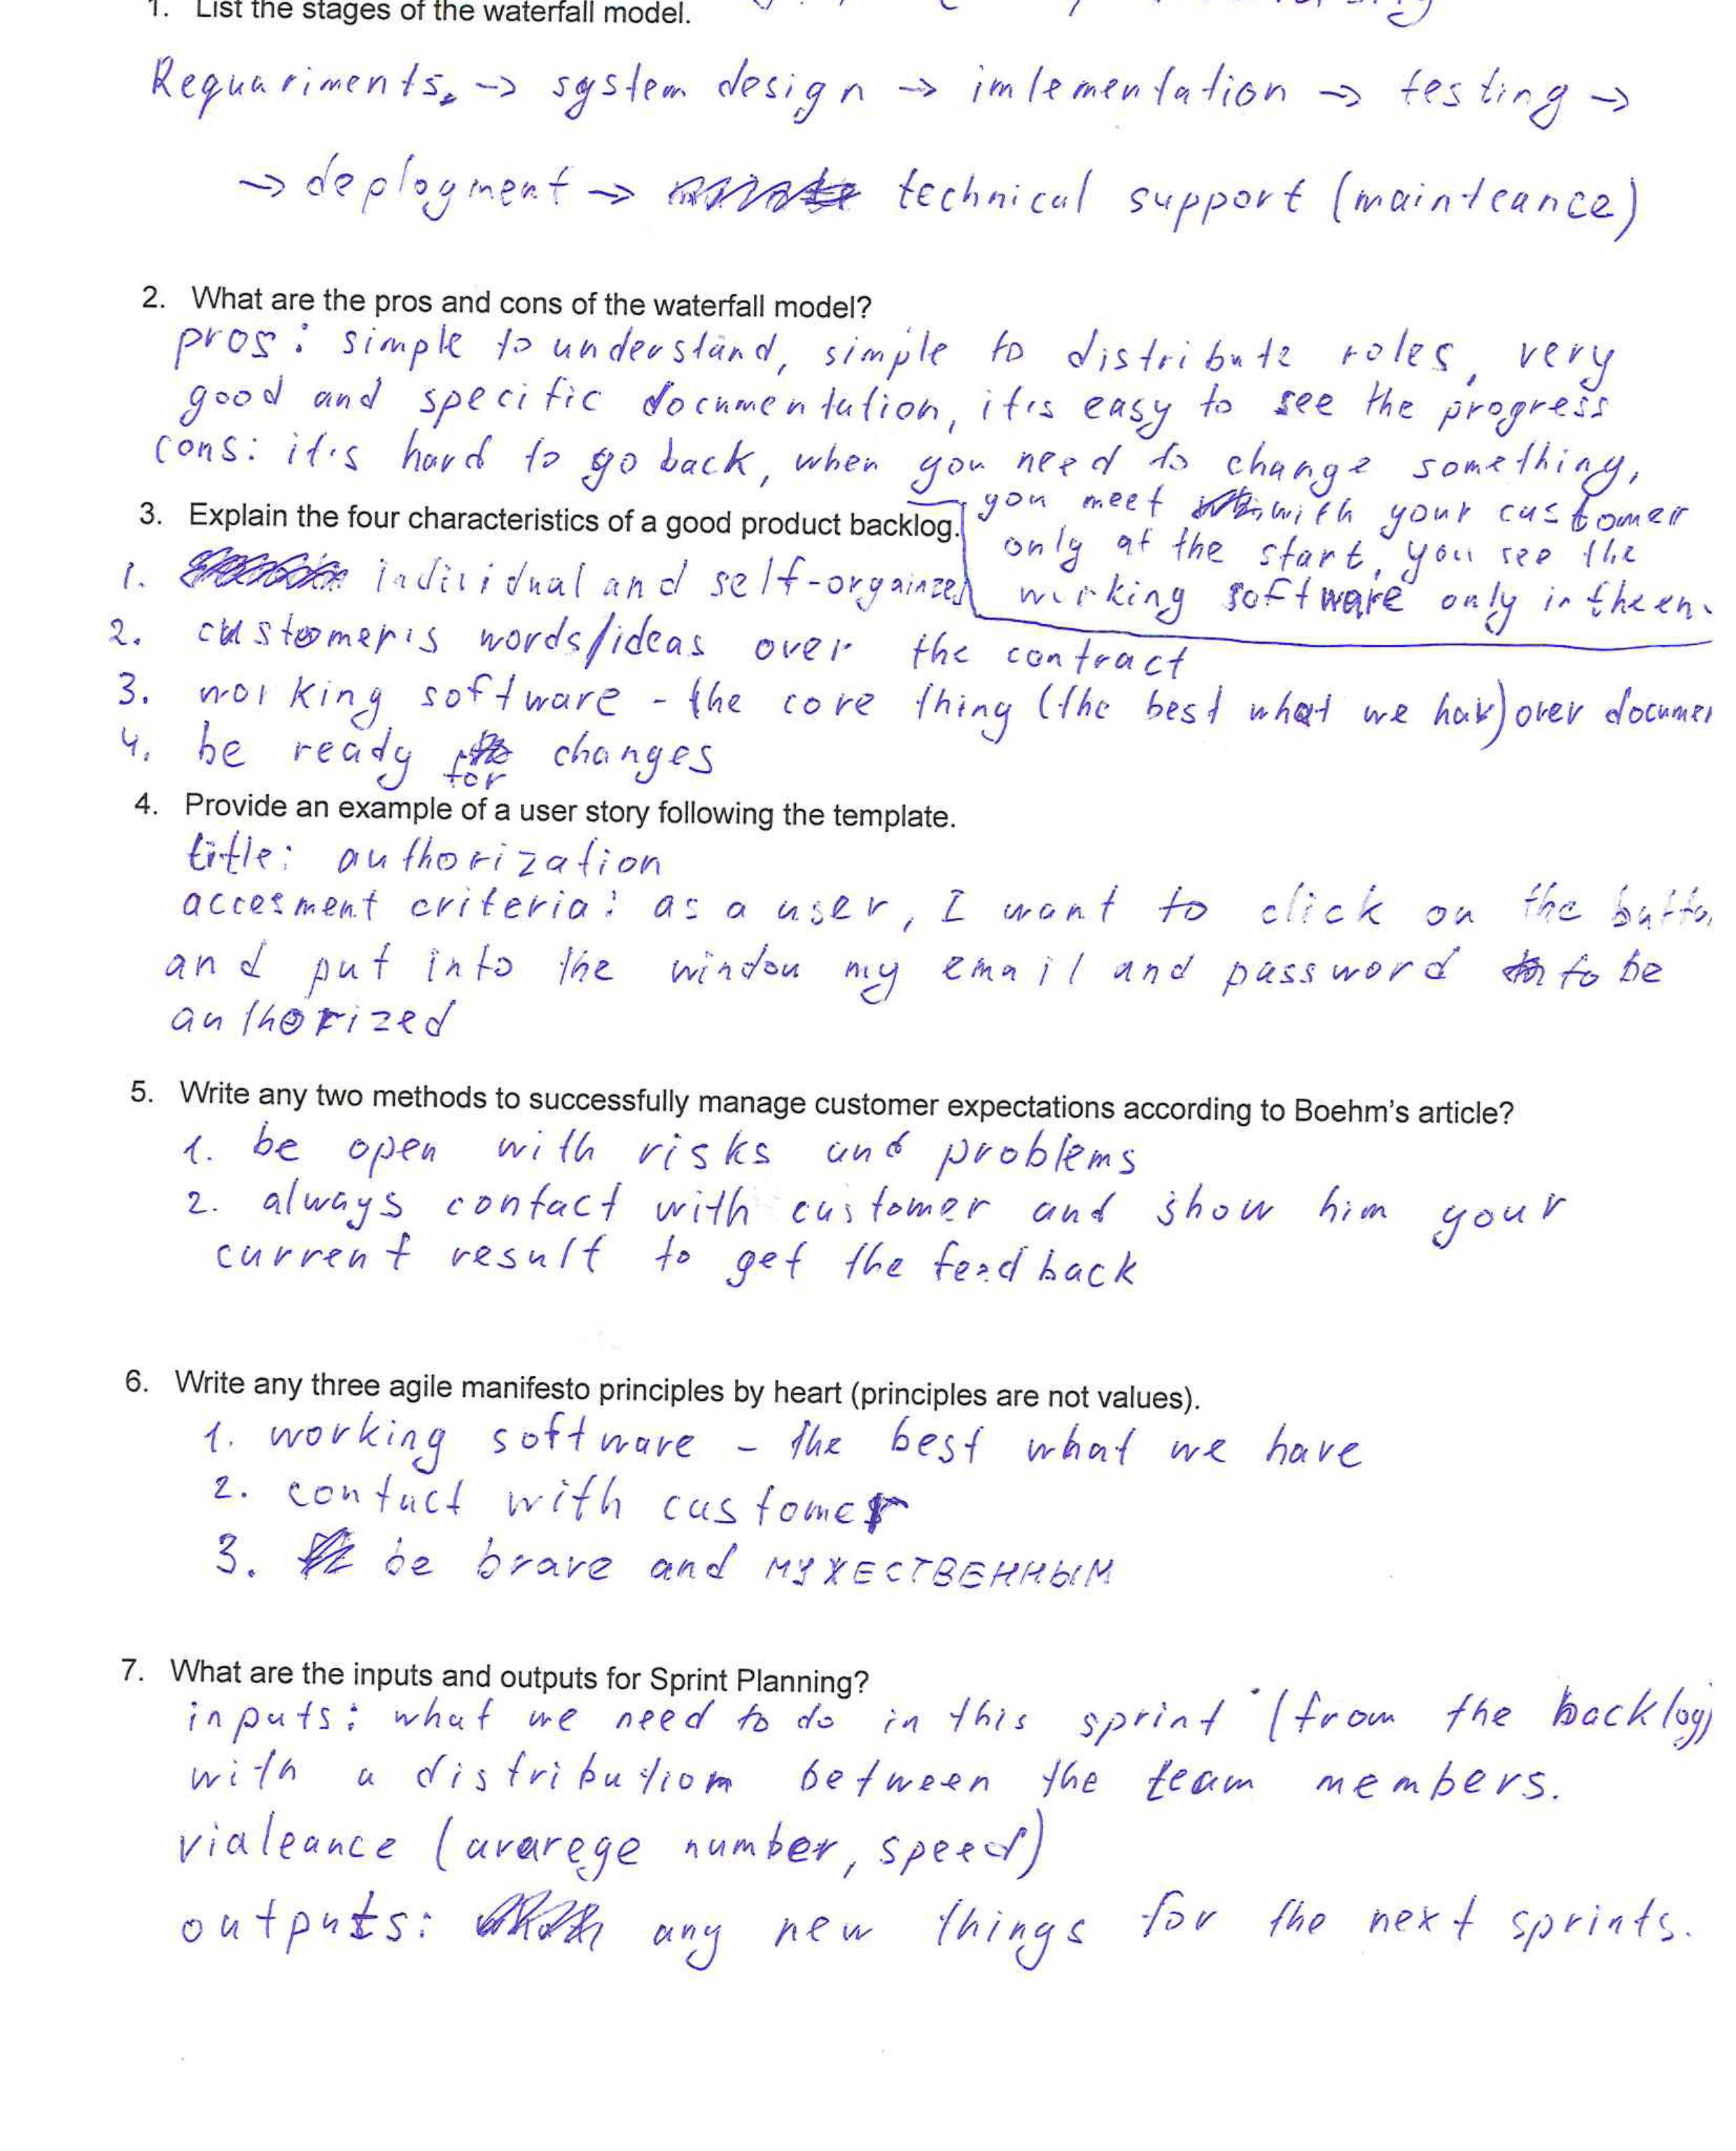 1. List the stages of the waterfall model.
Requariments, -> system design -> imlementation -> testing ->
-> deployment -> technical support (mainteance)
2. What are the pros and cons of the waterfall model?
pros: simple to understand, simple to distribute roles, very
good and specific documentation, it's easy to see the progress
cons: it's hard to go back, when you need to change something,
you meet with your customer
only at the start, you see the
working software only in the en
3. Explain the four characteristics of a good product backlog.
1. individual and self-orgainzed
2. customer's words/ideas over the contract
3. working software - the core thing (the best what we hav) over documen
4. be ready for changes
4. Provide an example of a user story following the template.
title: authorization
accesment criteria: as a user, I want to click on the button
and put into the window my email and password to be
authorized
5. Write any two methods to successfully manage customer expectations according to Boehm's article?
1. be open with risks and problems
2. always contact with customer and show him your
current result to get the feedback
6. Write any three agile manifesto principles by heart (principles are not values).
1. working software - the best what we have
2. contact with customer
3. be brave and МУЖЕСТВЕННЫМ
7. What are the inputs and outputs for Sprint Planning?
inputs: what we need to do in this sprint (from the backlog)
with a distribution between the team members.
vialeance (avarege number, speed)
outputs: any new things for the next sprints.